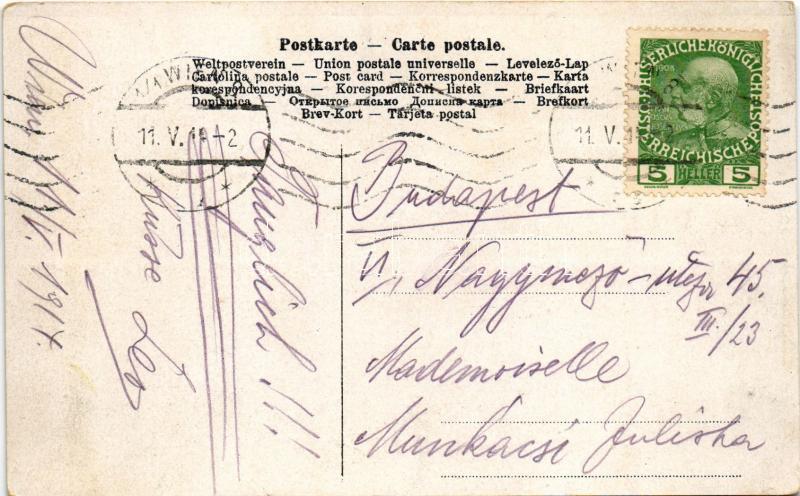 Postkarte — Carte postale.
Weltpostverein — Union postale universelle — Levelező-Lap
Cartolina postale — Post card — Korrespondenzkarte — Karta
korespondencyjna — Korespondenčni listek — Briefkaart
Dopisnica — Открытое письмо Дописна карта — Brefkort
Brev-Kort — Tarjeta postal
KAISERLICHE KÖNIGLICHE ÖSTERREICHISCHE POST
1908
5 HELLER 5
WIEN
11. V. 14-2
11. V. 1
Budapest
VI, Nagymező-utcza 45.
III./23
Mademoiselle
Munkácsi Juliska
11/V. 1914.
Küsse Leo